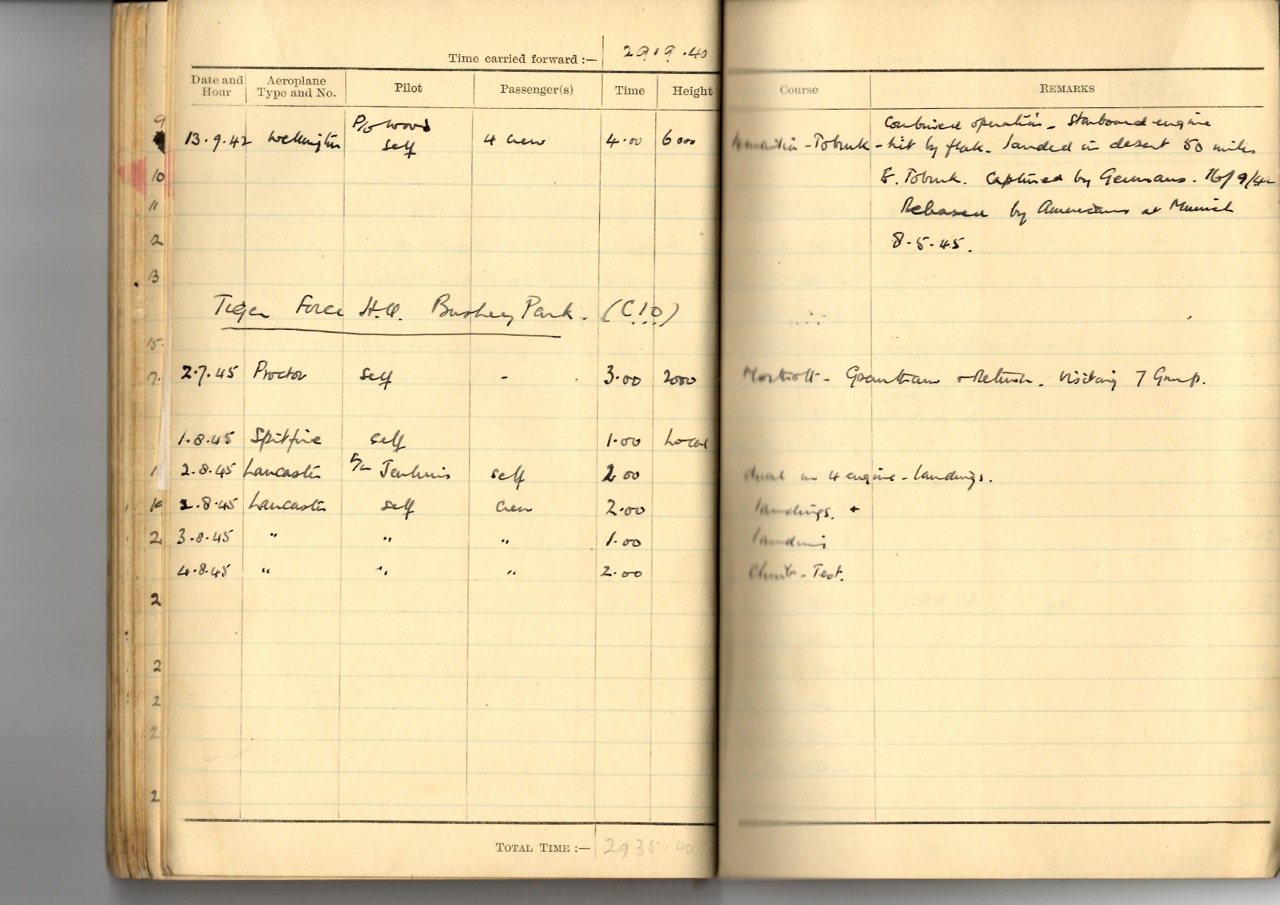 Time carried forward :— 2919.40
Date and Hour Aeroplane Type and No. Pilot Passenger(s) Time Height Course REMARKS
P/O Wood Combined operation - Starboard engine
13.9.42 Wellington self 4 crew 4.00 6000 - Tobruk - hit by flak. landed in desert 50 miles
E. Tobruk. Captured by Germans. 16/9/42
Released by Americans at Munich
8.5.45.
Tiger Force H.Q. Bushey Park. (C.I.O)
2.7.45 Proctor self - 3.00 2000 - Grantham + Return. Visiting 7 Group.
1.8.45 Spitfire self 1.00 Local
2.8.45 Lancaster F/L Jenkins self 2.00 dual in 4 engine - landings.
2.8.45 Lancaster self Crew 2.00 landings. +
3.8.45 " " " 1.00 landings
4.8.45 " " " 2.00 Climb - Test.
TOTAL TIME :— 2935.40
9
10
11
2
13
15
2
2
2
2
2